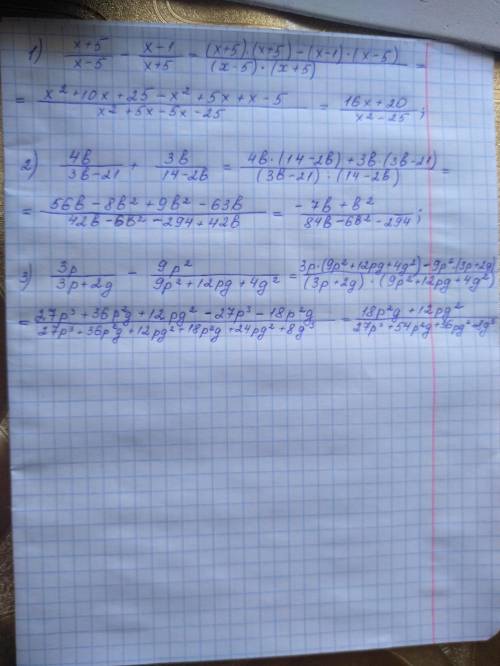 1) (x+5)/(x-5) - (x-1)/(x+5) = ((x+5)·(x+5)-(x-1)·(x-5))/((x-5)·(x+5)) =
= (x²+10x+25-x²+5x+x-5)/(x²+5x-5x-25) = (16x+20)/(x²-25);
2) 4в/(3в-21) + 3в/(14-2в) = (4в·(14-2в)+3в·(3в-21))/((3в-21)·(14-2в)) =
= (56в-8в²+9в²-63в)/(42в-6в²-294+42в) = (-7в+в²)/(84в-6в²-294);
3) 3p/(3p+2g) - 9p²/(9p²+12pg+4g²) = (3p·(9p²+12pg+4g²)-9p²·(3p+2g))/((3p+2g)·(9p²+12pg+4g²))
= (27p³+36p²g+12pg²-27p³-18p²g)/(27p³+36p²g+12pg²+18p²g+24pg²+8g³) = (18p²g+12pg²)/(27p³+54p²g+36pg²